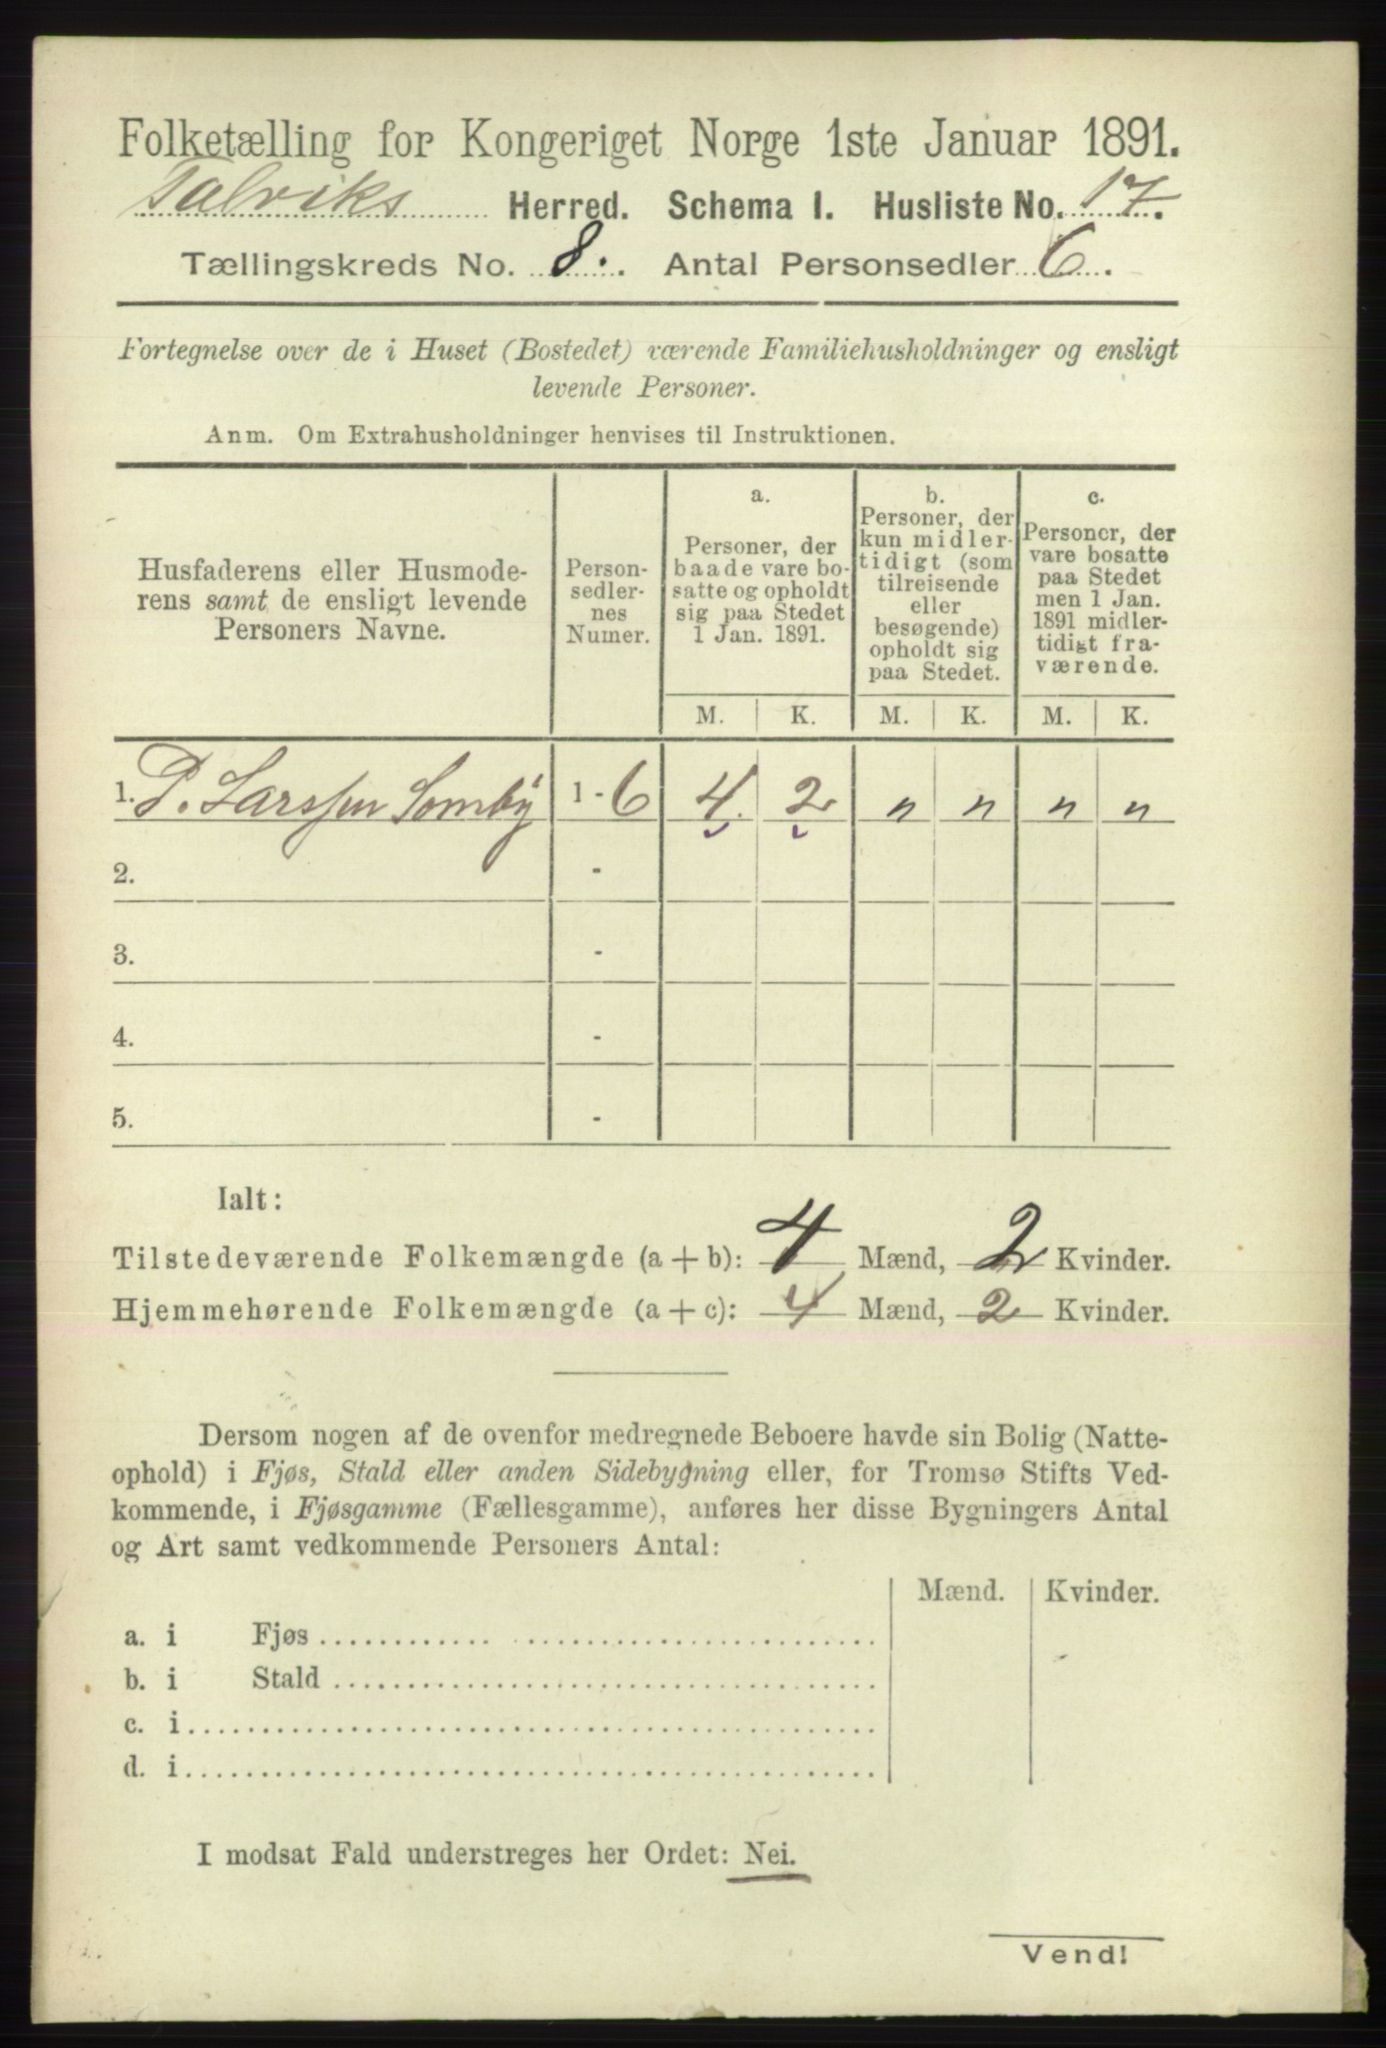 Folketælling for Kongeriget Norge 1ste Januar 1891.
Talviks Herred. Schema I. Husliste No. 17.
Tællingskreds No. 8. Antal Personsedler 6.
Fortegnelse over de i Huset (Bostedet) værende Familiehusholdninger og ensligt
levende Personer.
Anm. Om Extrahusholdninger henvises til Instruktionen.
Husfaderens eller Husmode-
rens samt de ensligt levende
Personers Navne.
Person-
sedler-
nes
Numer.
a.
Personer, der
baade vare bo-
satte og opholdt
sig paa Stedet
1 Jan. 1891.
b.
Personer, der
kun midler-
tidigt (som
tilreisende
eller
besøgende)
opholdt sig
paa Stedet.
c.
Personer, der
vare bosatte
paa Stedet
men 1 Jan.
1891 midler-
tidigt fra-
værende.
M. K. M. K. M. K.
1. P. Larssen Somby 1 - 6 4 2 " " " "
2. -
3. -
4. -
5. -
Ialt:
Tilstedeværende Folkemængde (a + b): 4 Mænd, 2 Kvinder.
Hjemmehørende Folkemængde (a + c): 4 Mænd, 2 Kvinder.
Dersom nogen af de ovenfor medregnede Beboere havde sin Bolig (Natte-
ophold) i Fjøs, Stald eller anden Sidebygning eller, for Tromsø Stifts Ved-
kommende, i Fjøsgamme (Fællesgamme), anføres her disse Bygningers Antal
og Art samt vedkommende Personers Antal:
Mænd. Kvinder.
a. i Fjøs
b. i Stald
c. i
d. i
I modsat Fald understreges her Ordet: Nei.
Vend!